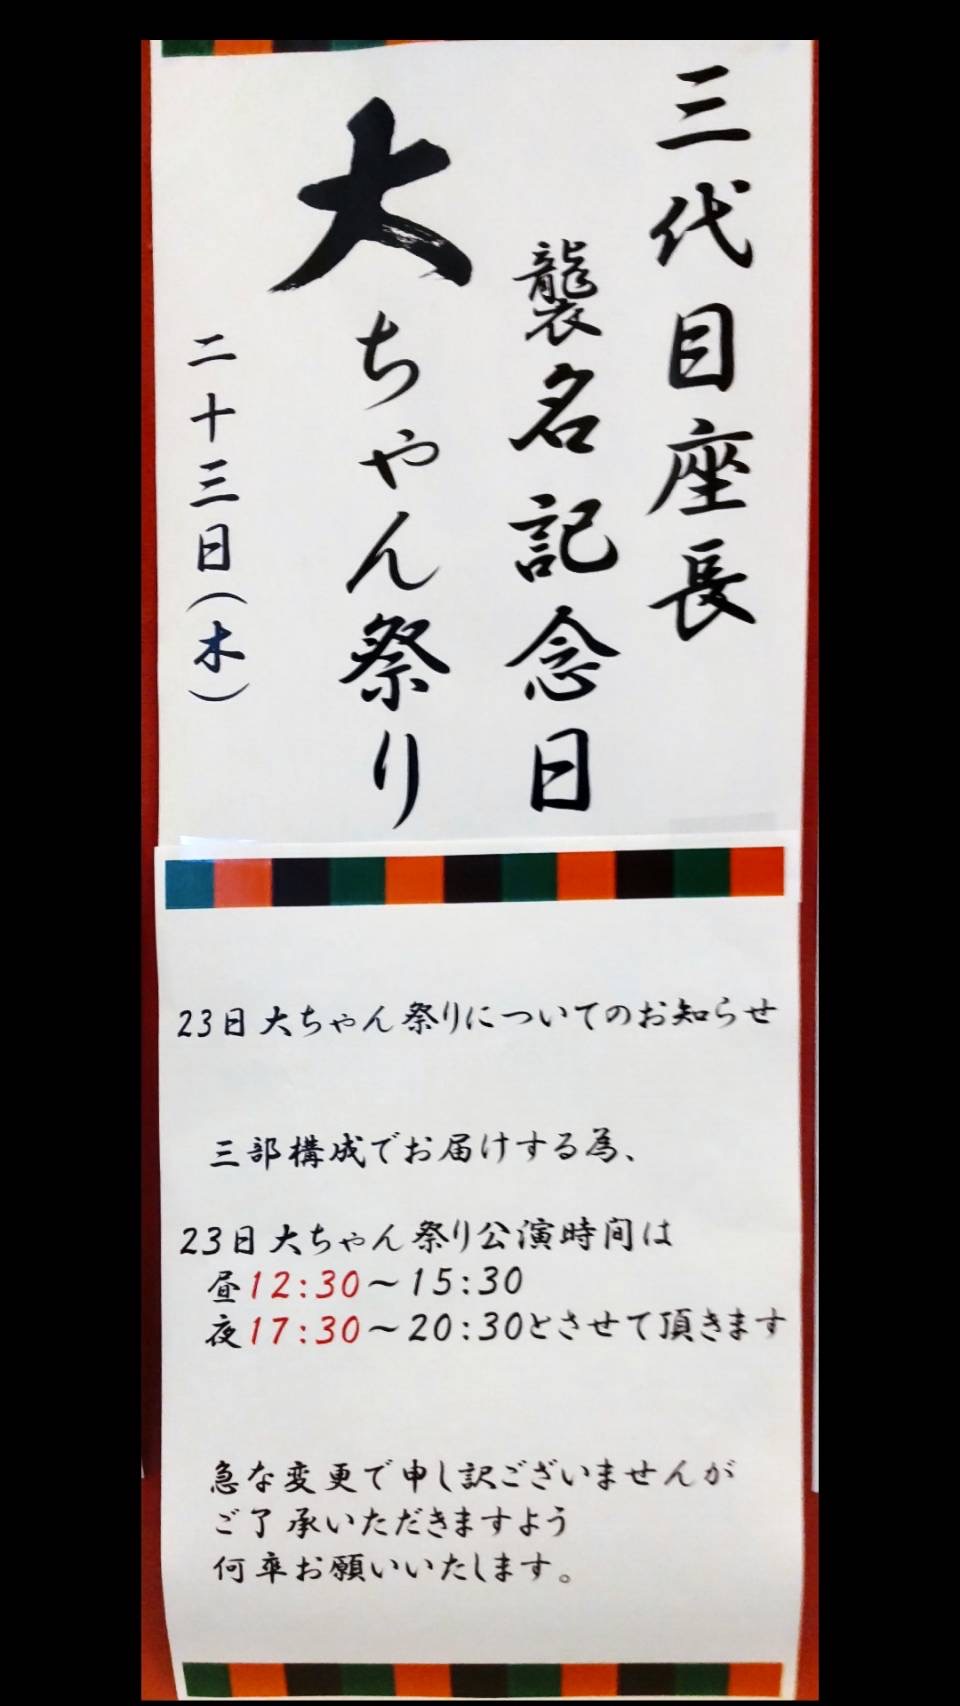 三代目座長
襲名記念日
大ちゃん祭り
二十三日(木)
23日大ちゃん祭りについてのお知らせ
三部構成でお届けする為、
23日大ちゃん祭り公演時間は
昼12:30～15:30
夜17:30～20:30とさせて頂きます
急な変更で申し訳ございませんが
ご了承いただきますよう
何卒お願いいたします。